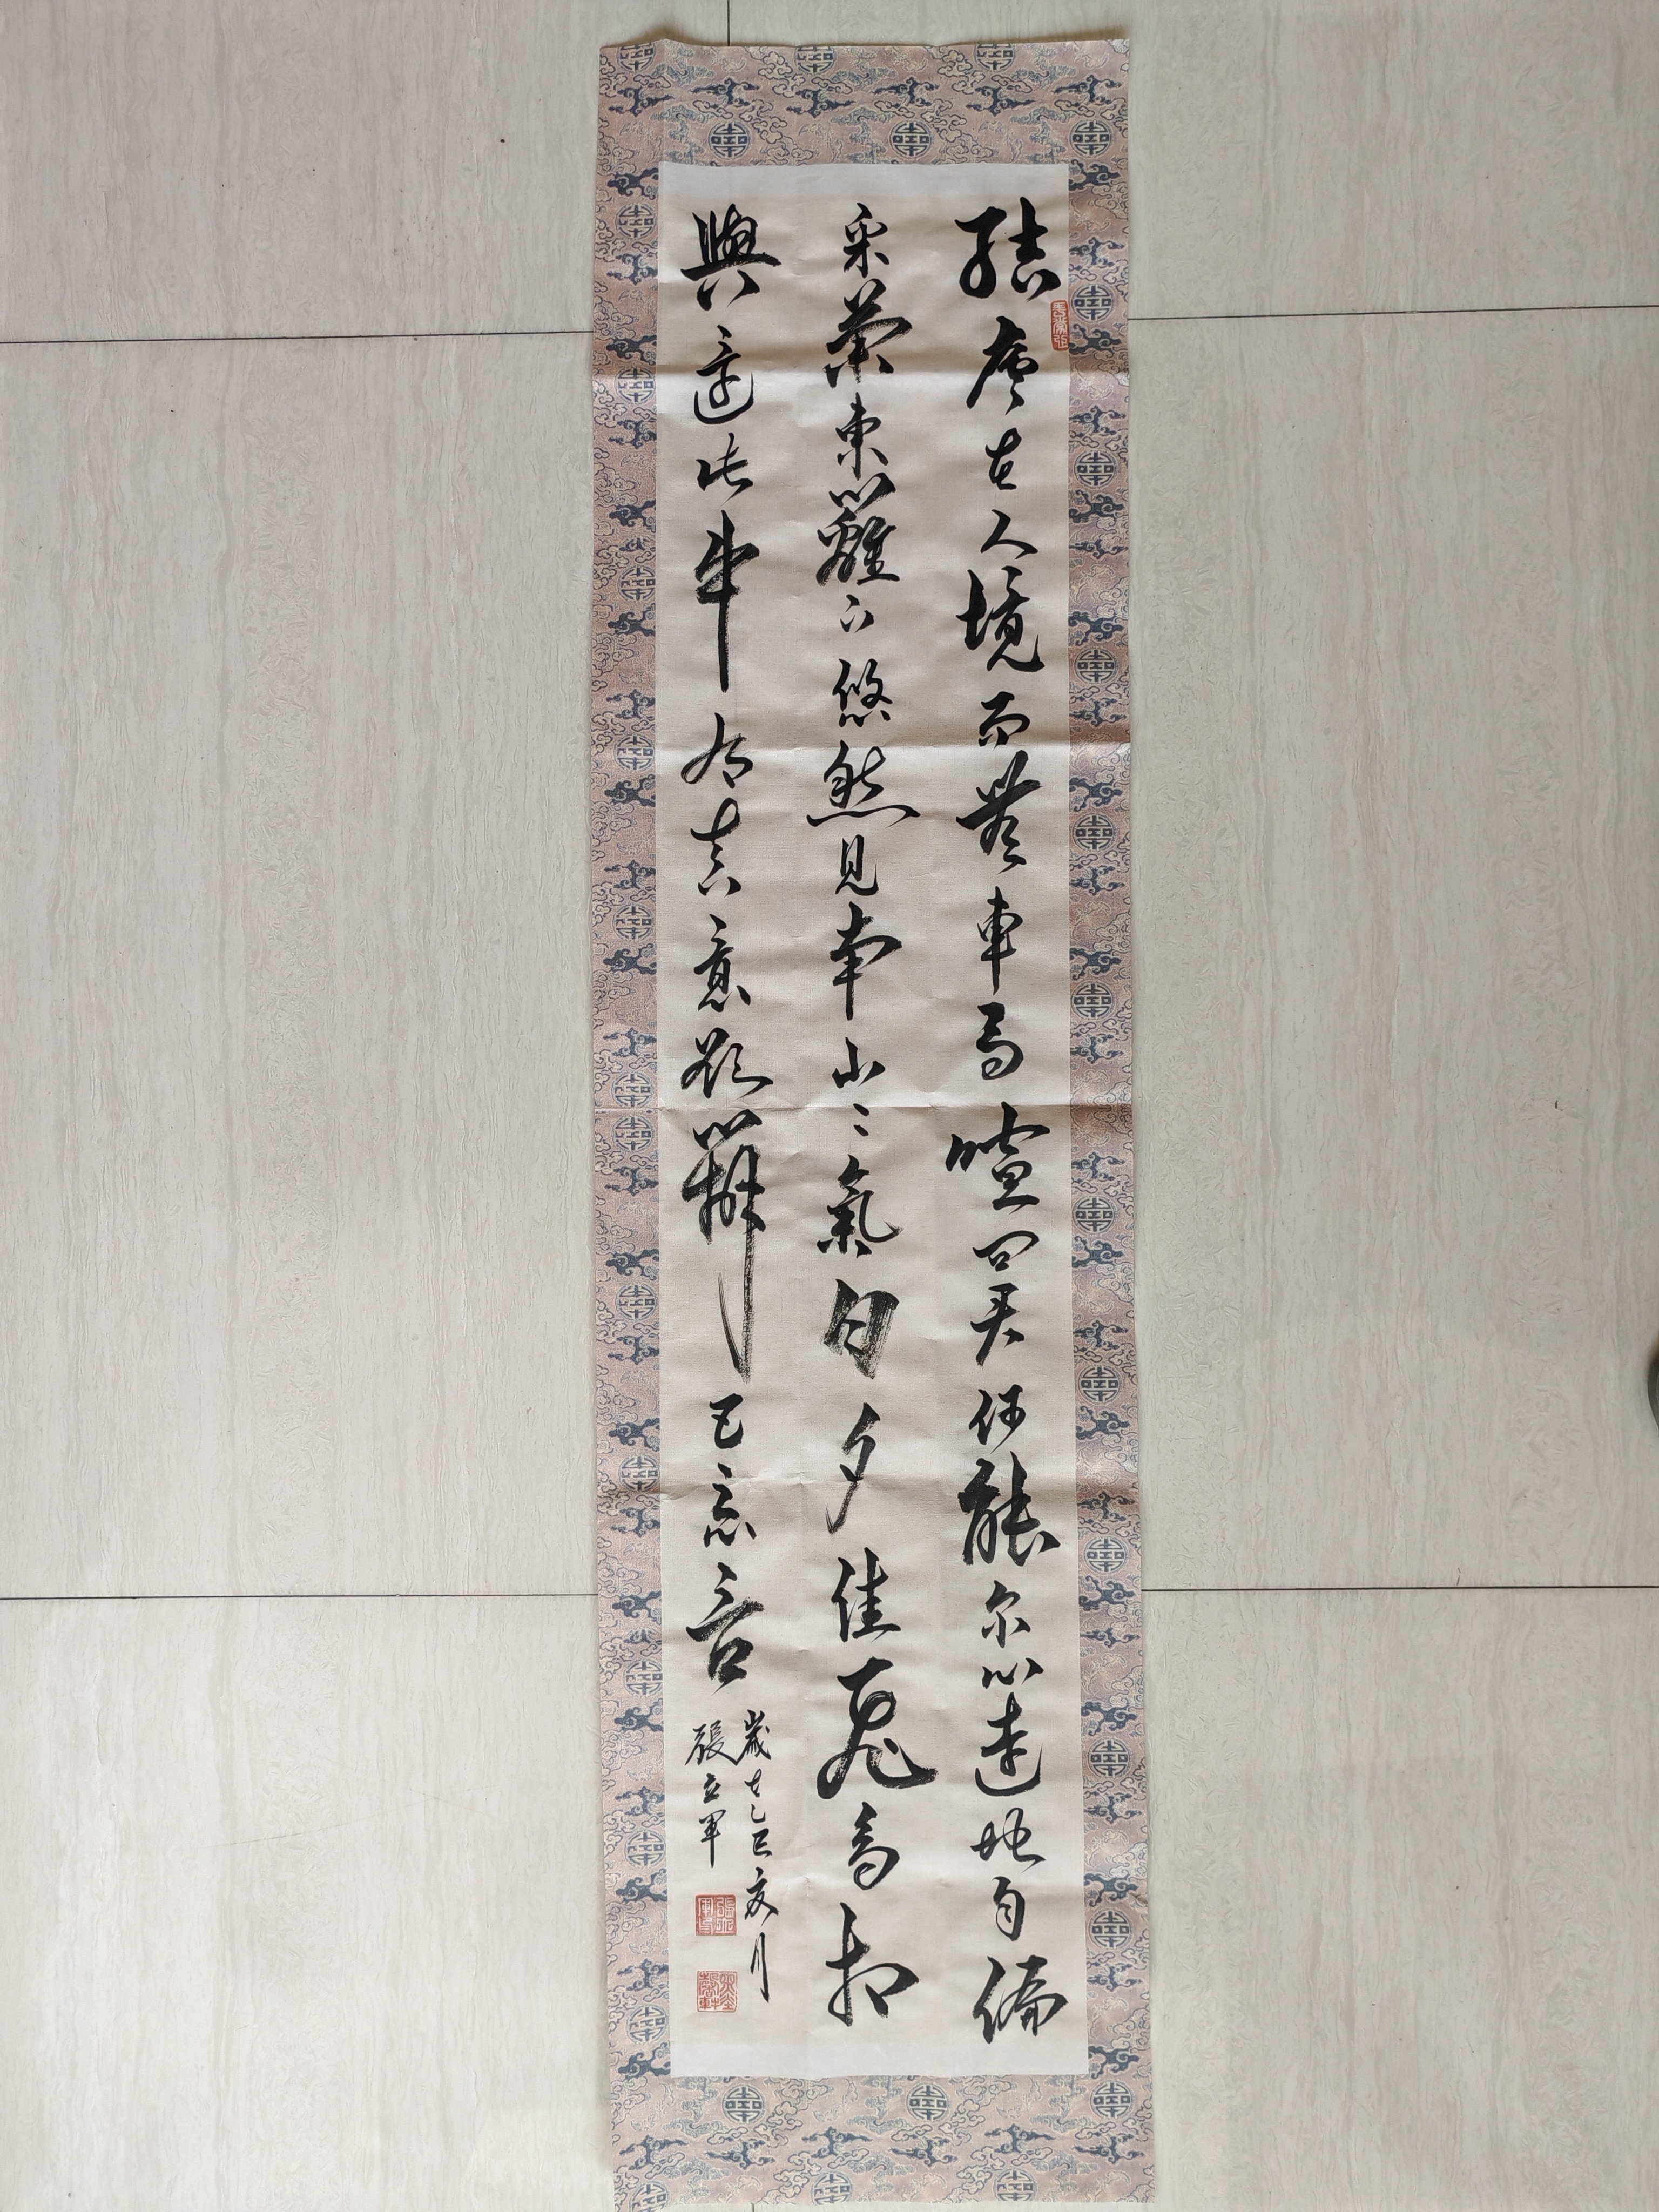 結廬在人境而無車馬喧問君何能尔心遠地自偏
采菊東籬下悠然見南山〻氣日夕佳飛鳥相
與還此中有真意欲辨已忘言
歲在乙巳夏月
張立軍